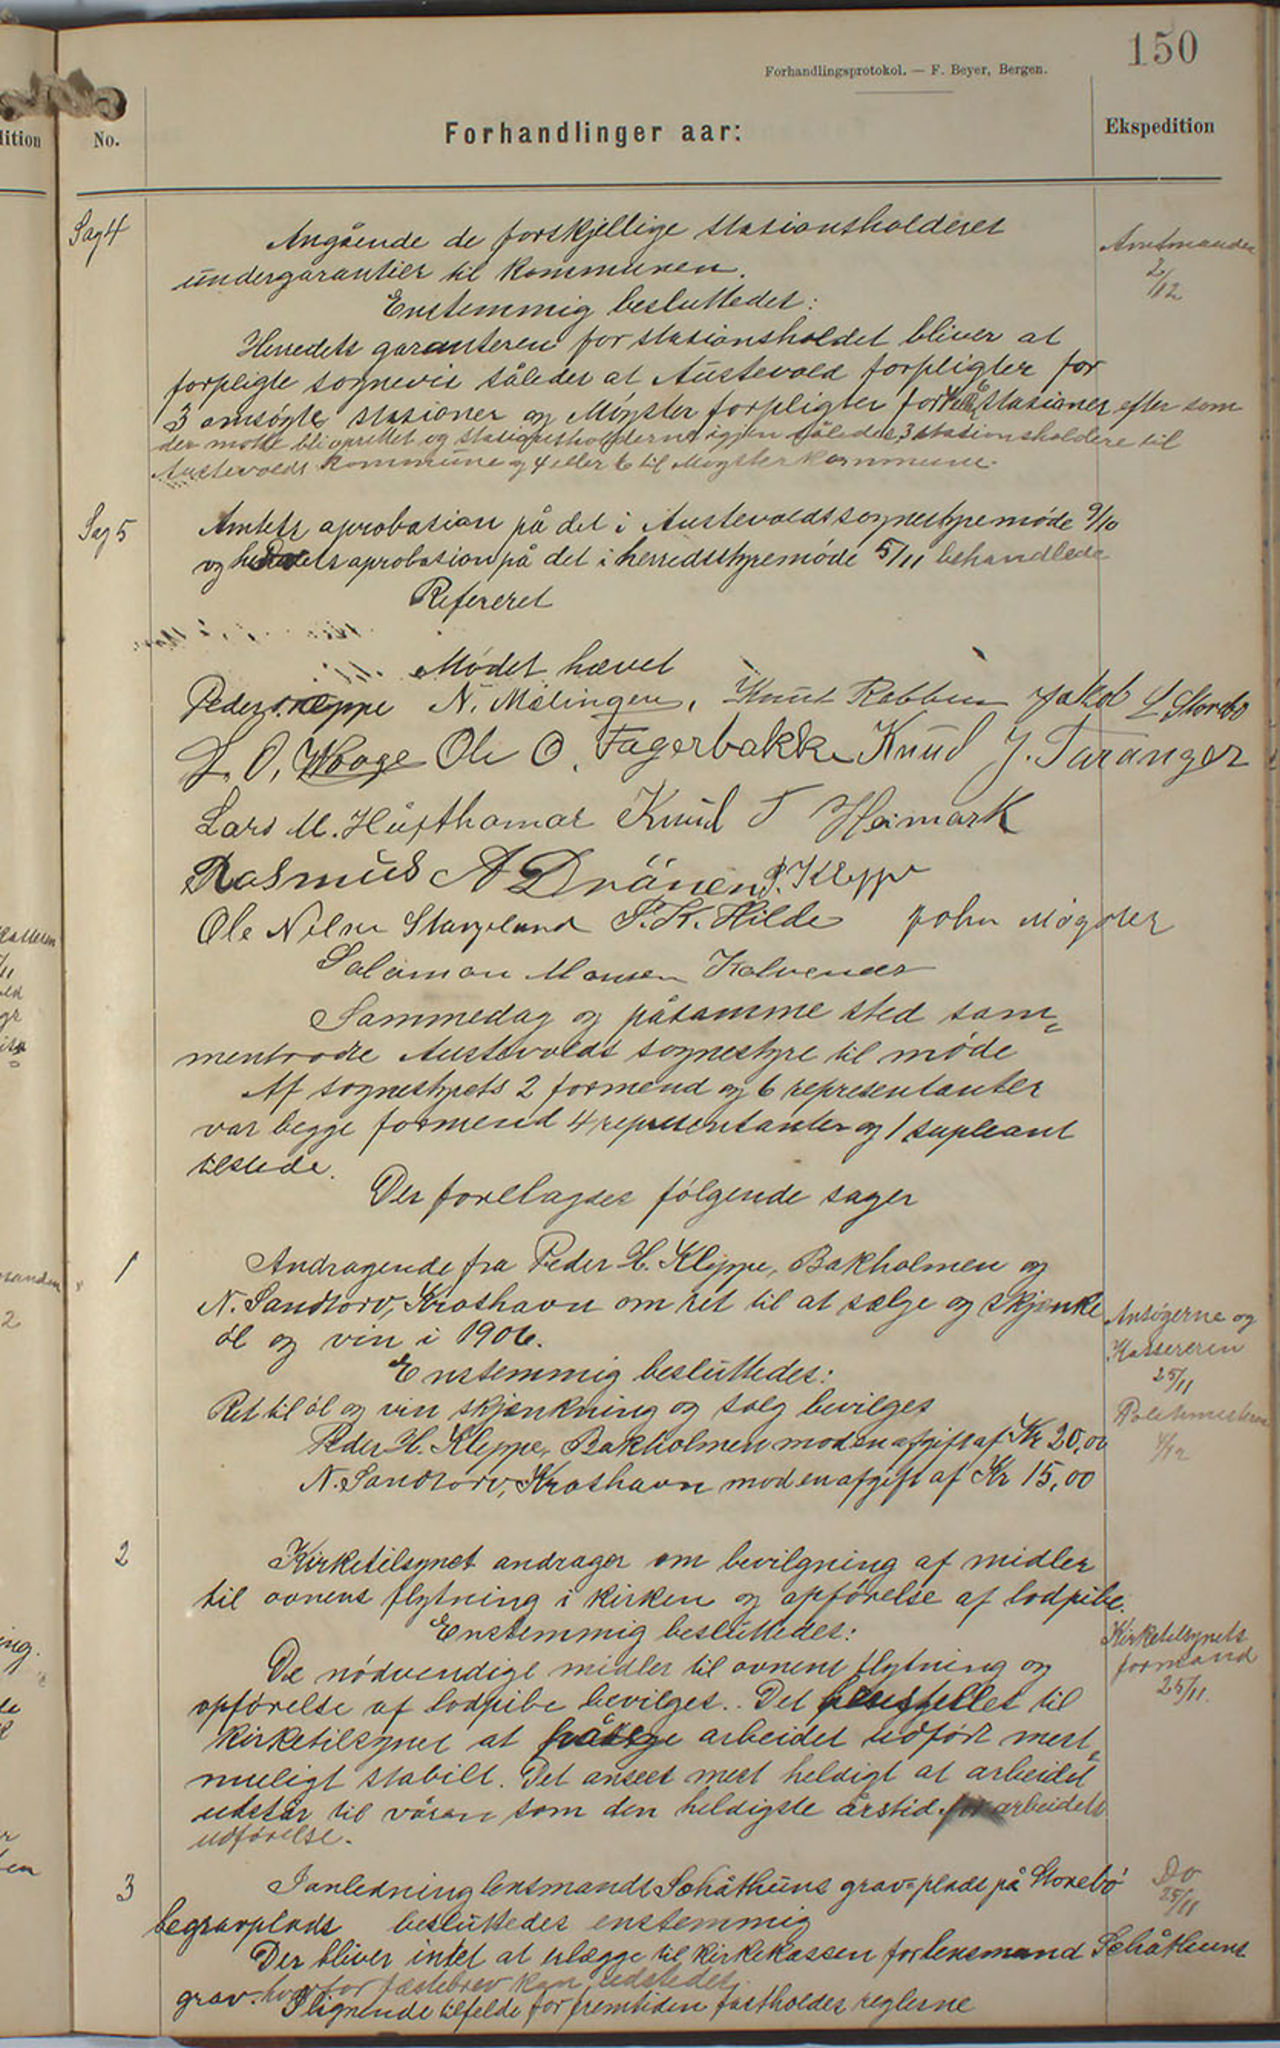 150
Forhandlingsprotokol. — F. Beyer, Bergen.
No.
Forhandlinger aar:
Ekspedition
Sag 4
Angående de forskjellige stasionsholderes
undergarantier til kommunen.
Enstemmig besluttedes:
Amtmanden
2/12
Herredets garanteren for stasionsholdet bliver at
forpligte sognevis således at Austevold forpligter for
3 omsøgte stasioner og Møgster forpligter for stasioner efter som
der motte bli oprettet og stasionsholderne igjen således 3 stasionsholdere til
Austevolds kommune og 4 eller 6 til Møgster kommune.
Sag 5
Amtets aprobasion på det i Austevolds sognestyremøde 9/10
og aprobasion på det i herredsstyremøde 5/11 behandlede
Refereret
Mødet hævet
Peder Kleppe N. Mølingen, Knut Rabben Jakob L Storebø
L. O. Waage Ole O. Fagerbakke Knud J. Taranger
Lars M. Hufthamar Knud T Heimark
Rasmus A Drönen P. Kleppe
Ole Nilsen Stangeland P. K. Hilde John Møgster
Salamon Monsen Kalvenes
Sammedag og påsamme sted sam=
mentrodte Austevolds sognestyre til møde
Af sognestyrets 2 formend og 6 representanter
var begge formend 4 representanter og 1 supleant
tilstede.
Der forelagdes følgende sager
1
Andragende fra Peder H. Kleppe, Bakholmen og
N. Sandtorv, Kroshavn om ret til at sælge og skjænke
øl og vin i 1906.
Enstemmig besluttedes:
Ret til øl og vin skjænkning og salg bevilges
Peder H. Kleppe, Bakholmen mod en afgift af Kr 20,00
N. Sandtorv, Kroshavn mod en afgift af Kr 15,00
Ansøgerne og
Kassereren
25/11
Politimesteren
4/12
2
Kirketilsynet andrager om bevilgning af midler
til ovnens flytning i kirken og opførelse af lodpibe.
Enstemmig besluttedes:
De nødvendige midler til ovnens flytning og
opførelse af lodpibe bevilges. Det henstilles til
kirketilsynet at arbeidet udført mest
muligt stabilt. Det ansees mest heldigt at arbeidet
udstår til våren som den heldigste årstid for arbeidets
udførelse.
Kirketilsynets
formand
25/11.
3
Ianledning lensmands Schåthuns grav=plads på Storebø
begravplads besluttedes enstemmig
Der bliver intet at erlægge til kirkekassen for lensmand Schåthuns
grav. hvorfor fæstebrev kan udstedes.
I lignende tilfelde for fremtiden fastholdes reglerne
Do
25/11